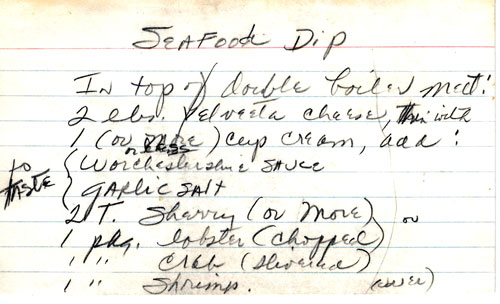 Seafood Dip
In top of double boiler melt:
2 lbs. Velveeta cheese, thin with
1 (or more) cup cream, add:
or less
to taste
Worchestershire sauce
garlic salt
2 T. Sherry (or more) or
1 pkg. lobster (chopped)
1 " crab (slivered)
1 " Shrimp. (over)